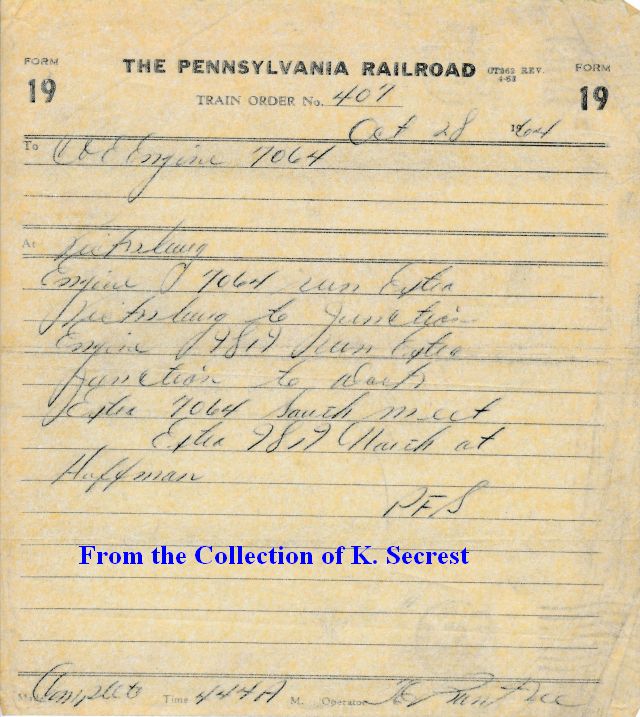 FORM 19
THE PENNSYLVANIA RAILROAD
CT262 REV. 4-53
FORM 19
TRAIN ORDER No. 407
Oct 28 1964
To C&E Engine 7064
At Vicksburg
Engine 7064 run Extra
Vicksburg to Junction
Engine 9817 run Extra
Junction to
Extra 7064 South meet
Extra 9817 North at
Hoffman
PFS
From the Collection of K. Secrest
Made Complete Time 444 A M. Operator